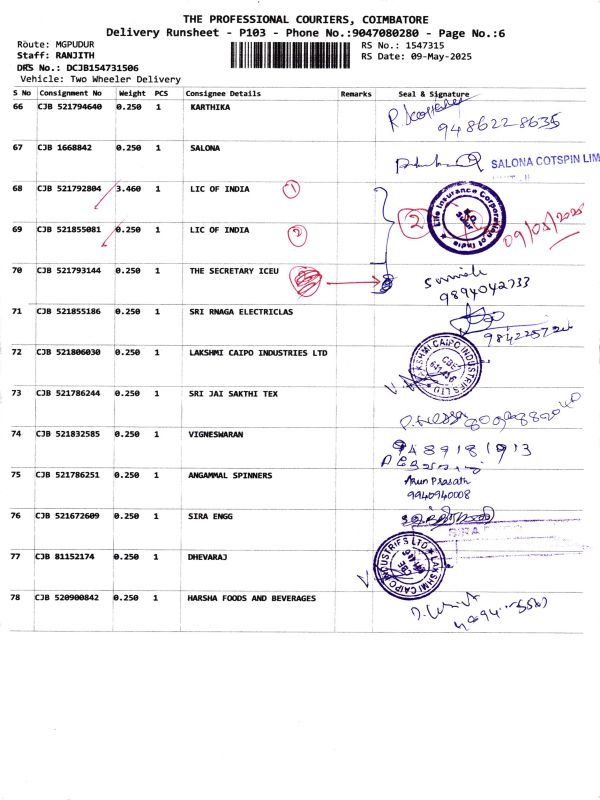 THE PROFESSIONAL COURIERS, COIMBATORE
Delivery Runsheet - P103 - Phone No.:9047080280 - Page No.:6
Route: MGPUDUR
RS No.: 1547315
Staff: RANJITH
RS Date: 09-May-2025
DRS No.: DCJB154731506
Vehicle: Two Wheeler Delivery
S No Consignment No Weight PCS Consignee Details Remarks Seal & Signature
66 CJB 521794640 0.250 1 KARTHIKA
9486228635
67 CJB 1668842 0.250 1 SALONA
SALONA COTSPIN LIM
68 CJB 521792804 3.460 1 LIC OF INDIA 1
2 Life Insurance Corporation of India 09/05/2025
69 CJB 521855081 0.250 1 LIC OF INDIA 2
70 CJB 521793144 0.250 1 THE SECRETARY ICEU
9894042733
71 CJB 521855186 0.250 1 SRI RNAGA ELECTRICLAS
72 CJB 521806030 0.250 1 LAKSHMI CAIPO INDUSTRIES LTD
LAKSHMI CAIPO INDUSTRIES LTD
73 CJB 521786244 0.250 1 SRI JAI SAKTHI TEX
74 CJB 521832585 0.250 1 VIGNESWARAN
9489181913
75 CJB 521786251 0.250 1 ANGAMMAL SPINNERS
Arun Prasath
9940940008
76 CJB 521672609 0.250 1 SIRA ENGG
77 CJB 81152174 0.250 1 DHEVARAJ
LAKSHMI CAIPO INDUSTRIES LTD
78 CJB 520900842 0.250 1 HARSHA FOODS AND BEVERAGES